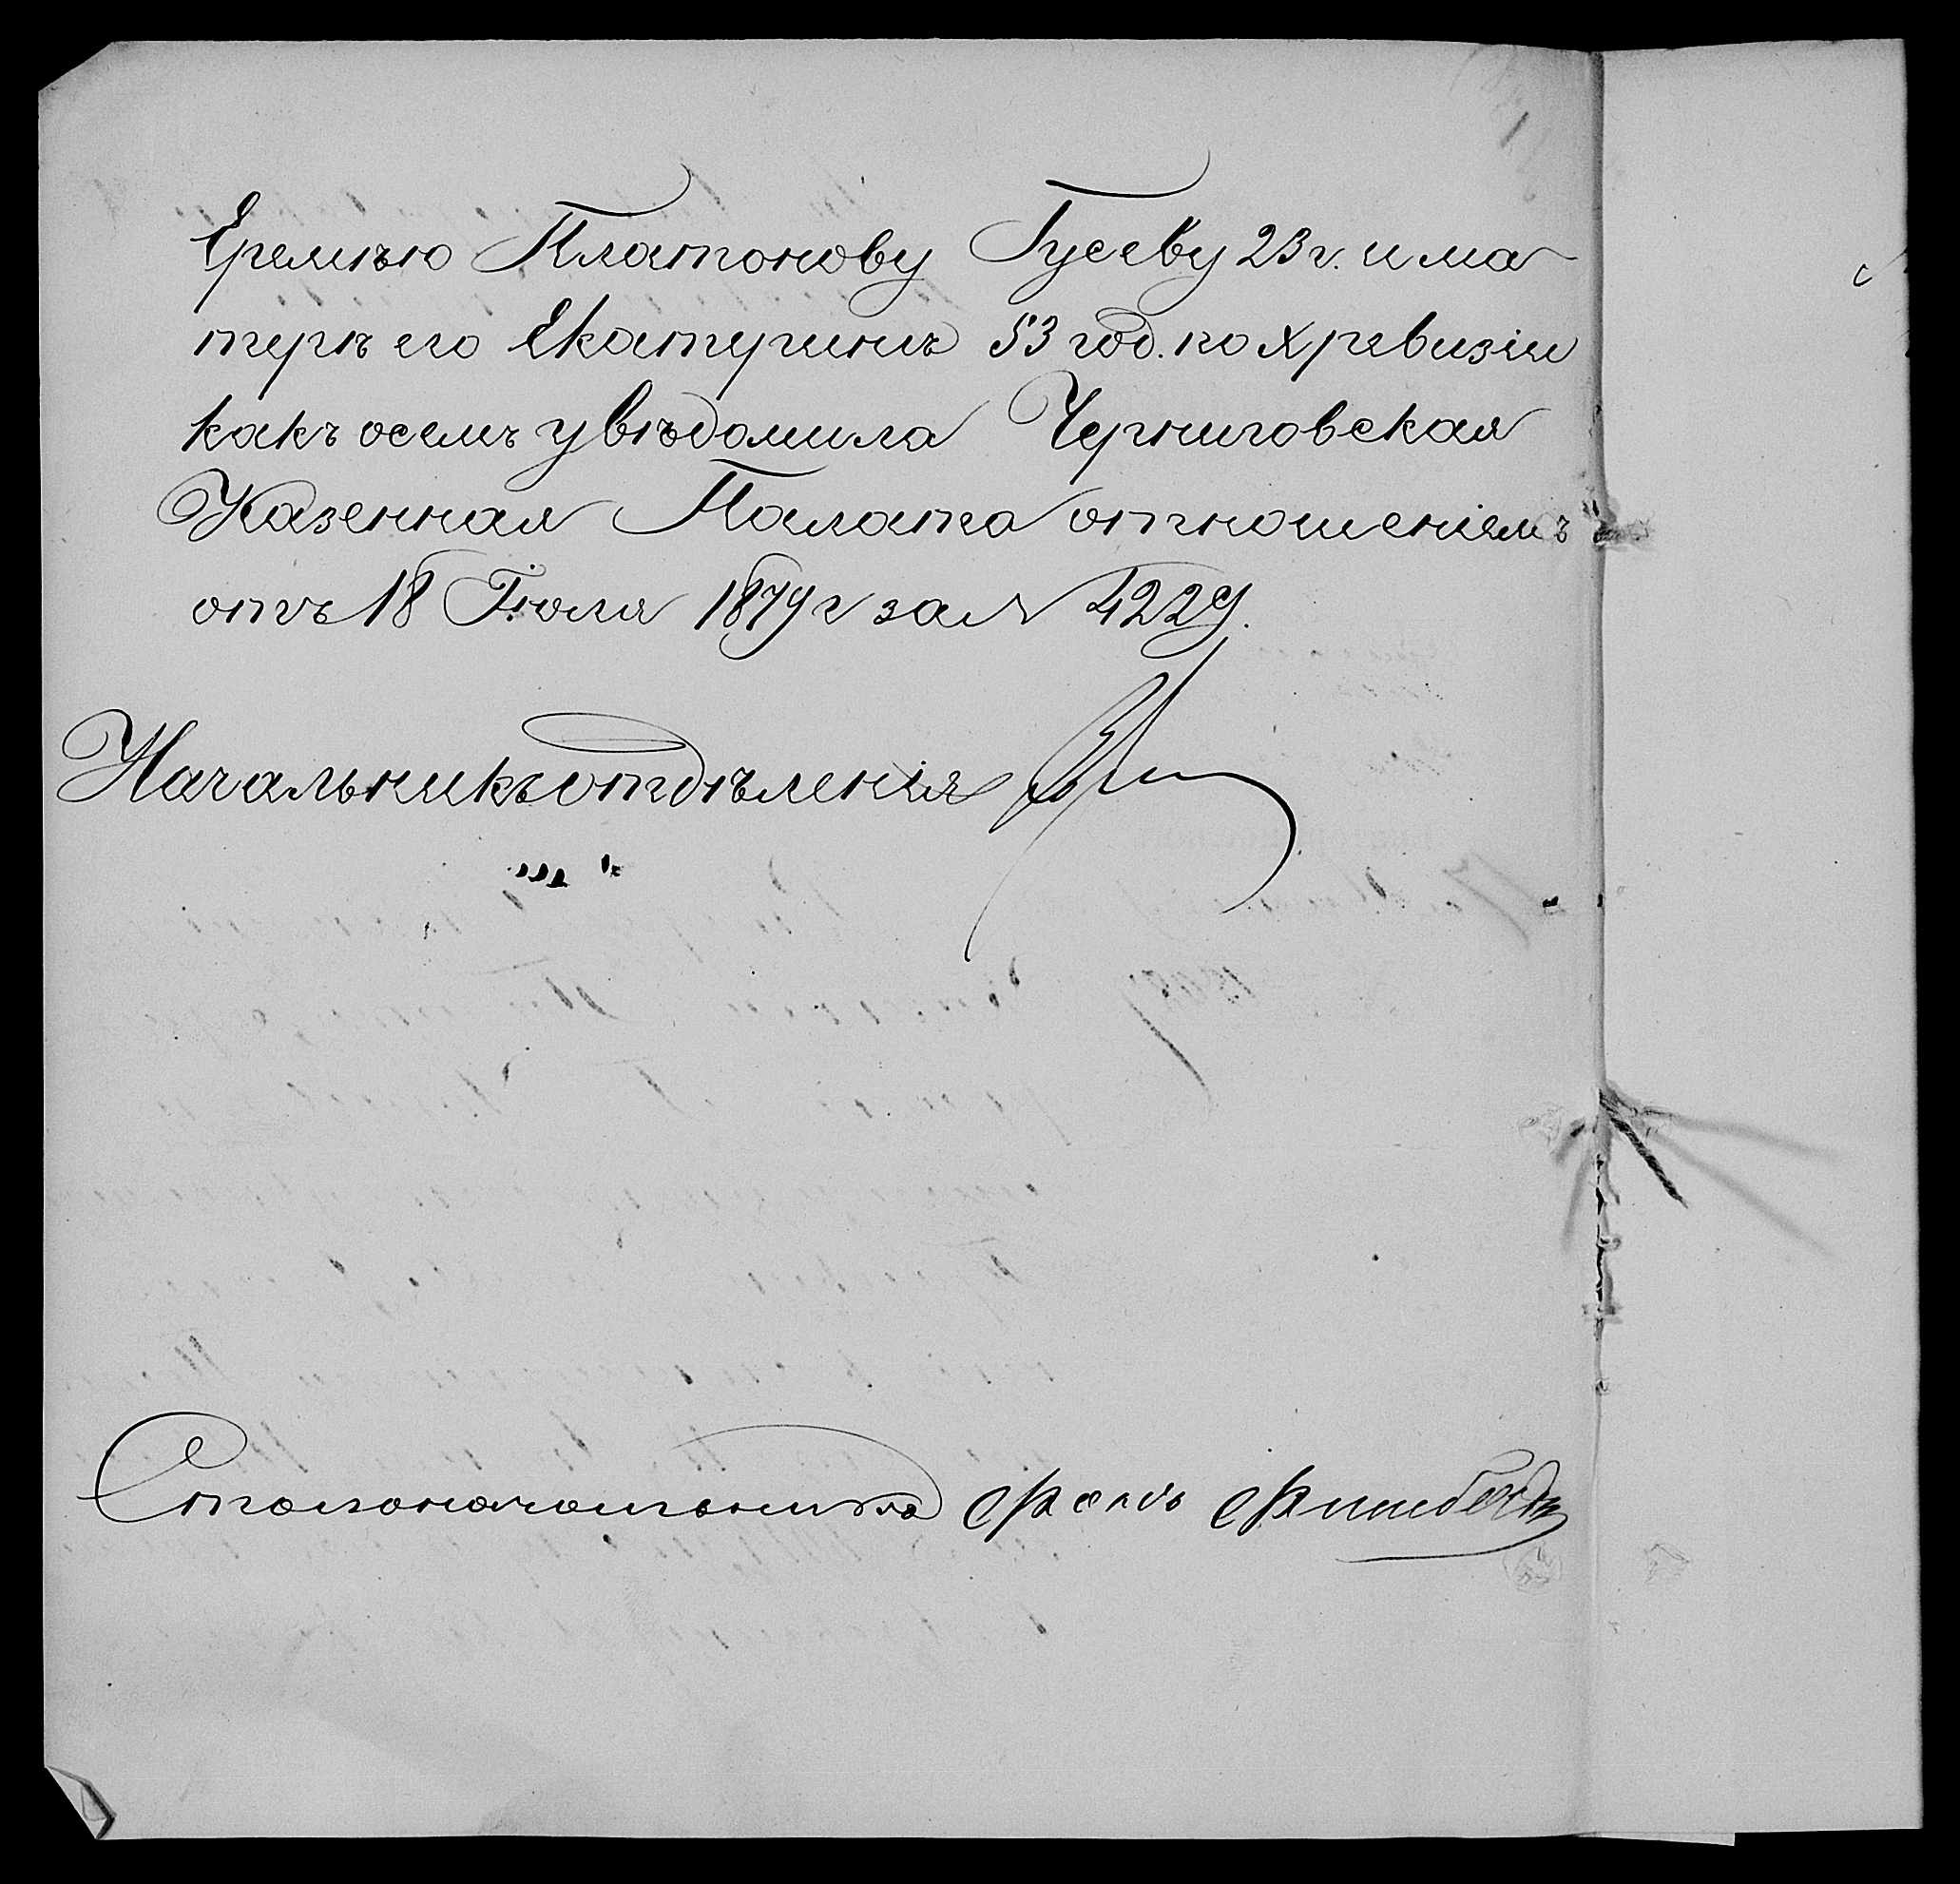 Еремѣю Платонову Гусеву 23 г. и ма
терѣ его Екатеринѣ 53 год. по X ревизіи
какъ о семъ увѣдомила Черниговская
Казенная Палата отношеніемъ
отъ 18 Іюля 1879 г за № 4229.
Начальникъ отдѣленія
Столоначальникъ фонъ